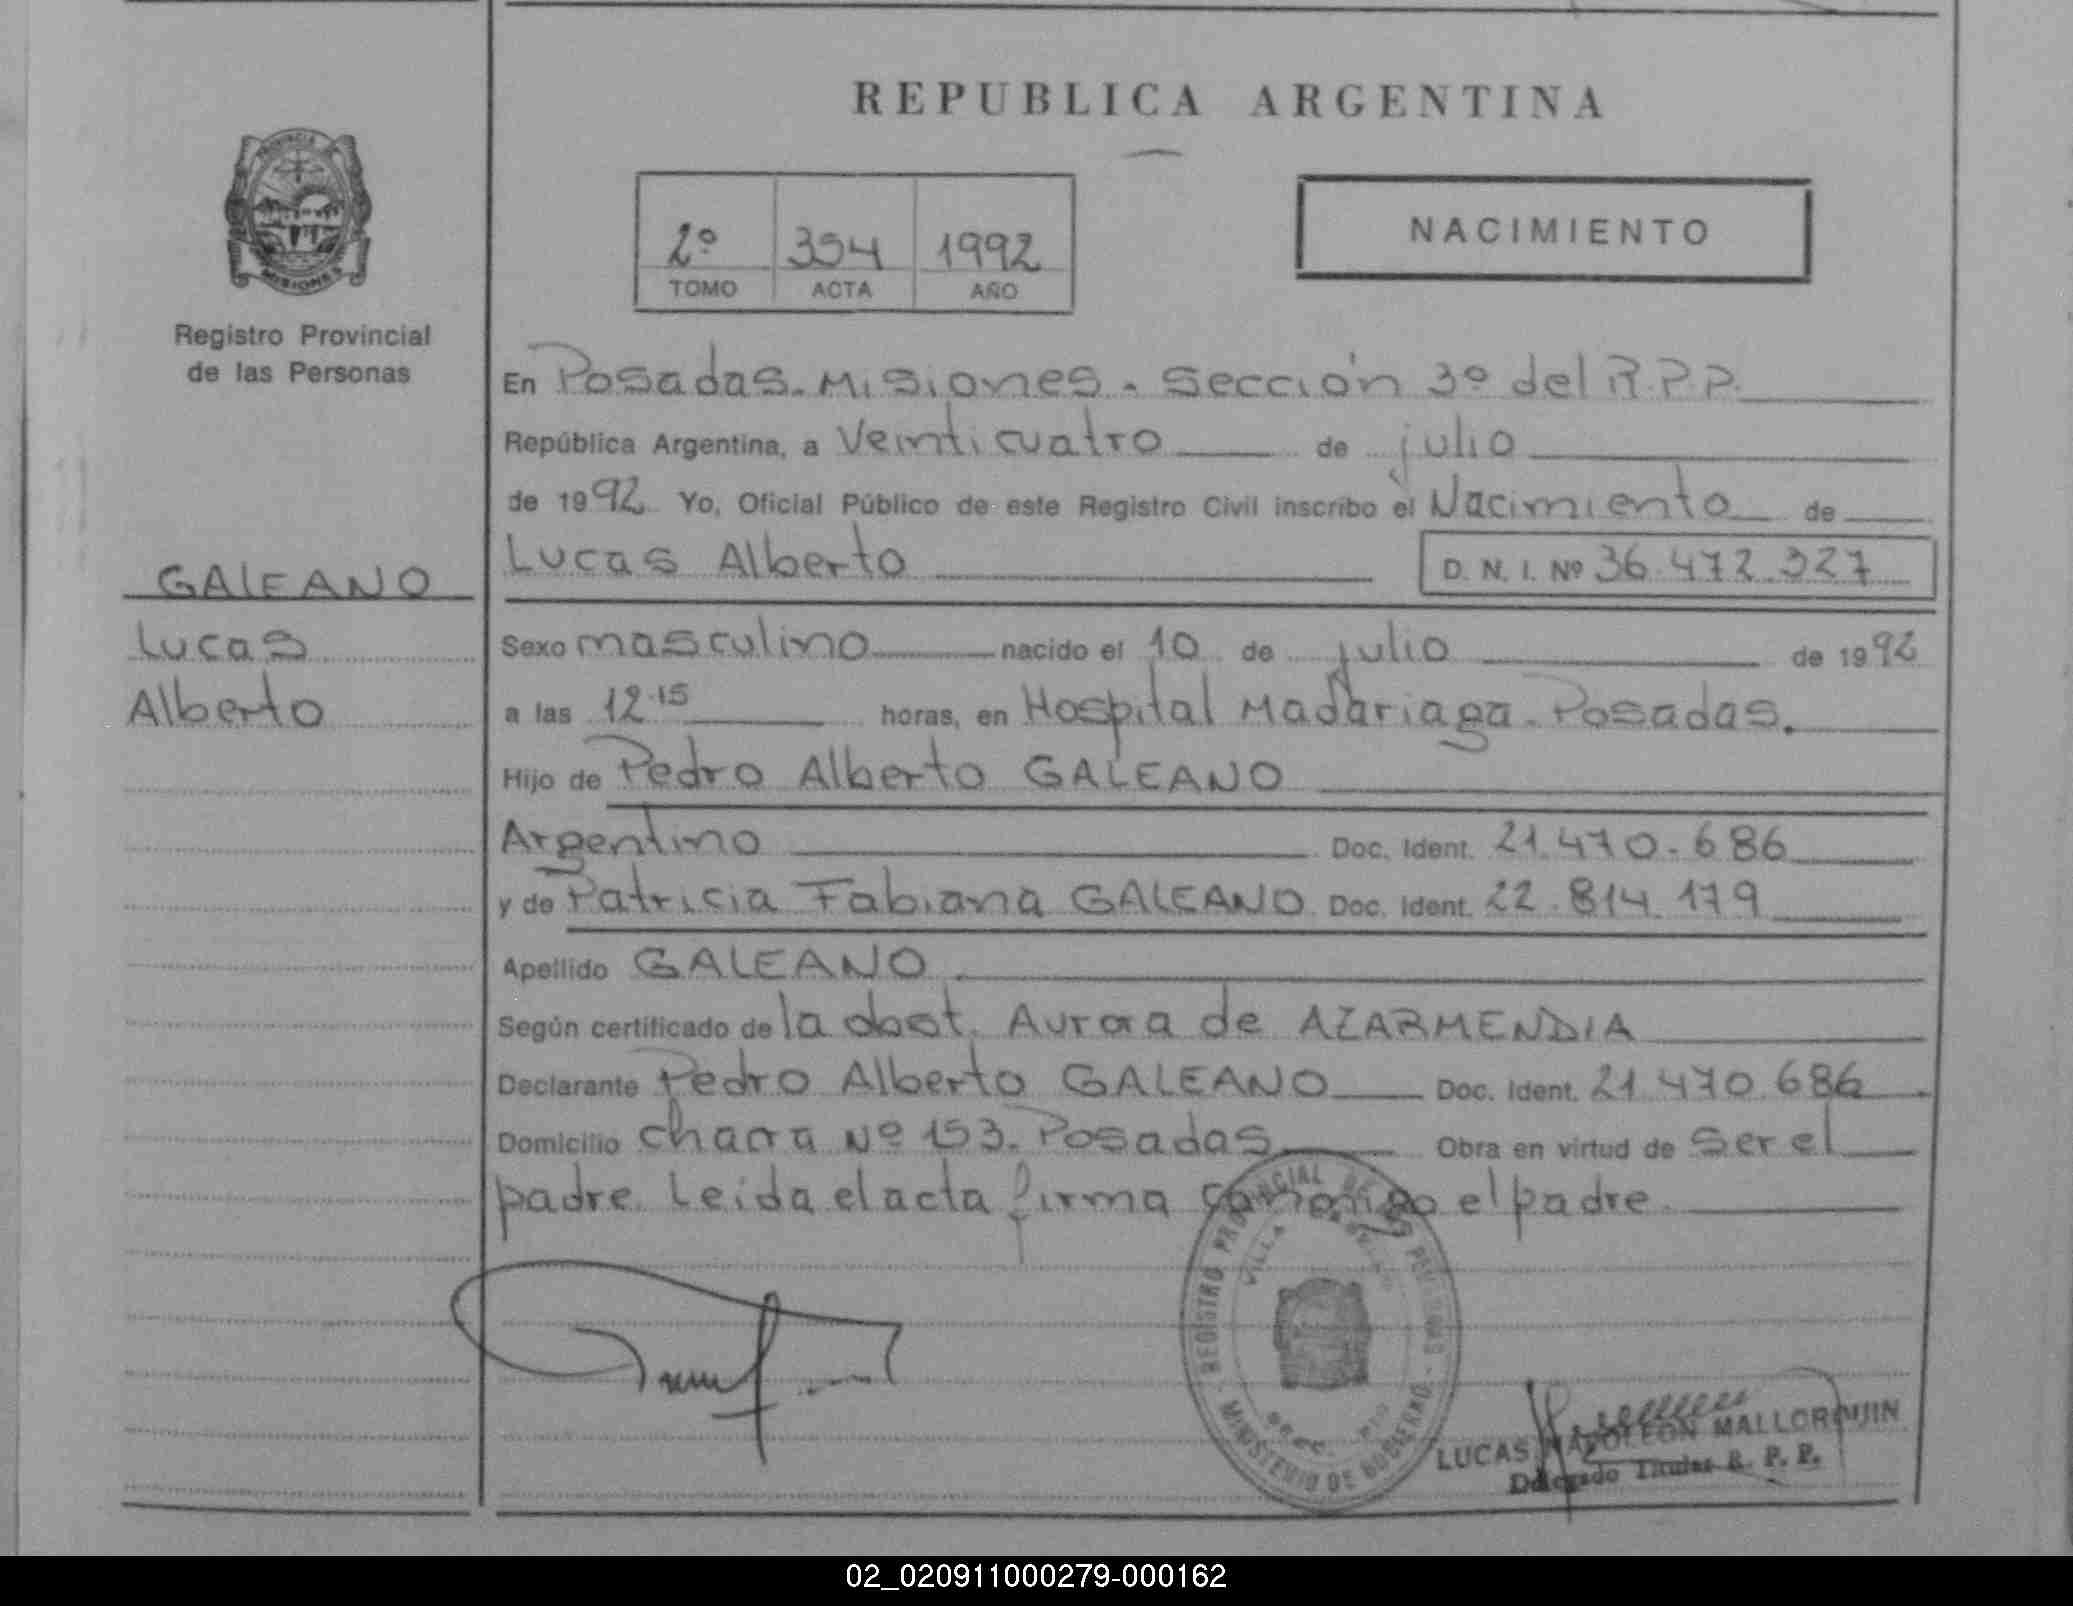 REPUBLICA ARGENTINA
PROVINCIA DE
MISIONES
Registro Provincial
de las Personas
2º 354 1992
TOMO ACTA AÑO
NACIMIENTO
En Posadas. Misiones. Sección 3º del R.P.P.
República Argentina, a Veinticuatro de julio
de 1992 Yo, Oficial Público de este Registro Civil inscribo el Nacimiento de
GALEANO
Lucas Alberto D. N. I. Nº 36.472.327
Lucas
Sexo masculino nacido el 10 de julio de 1992
Alberto
a las 12.15 horas, en Hospital Madariaga. Posadas.
Hijo de Pedro Alberto GALEANO
Argentino Doc. Ident. 21.470.686
y de Patricia Fabiana GALEANO Doc. Ident. 22.814.179
Apellido GALEANO
Según certificado de la obst. Aurora de AZARMENDIA
Declarante Pedro Alberto GALEANO Doc. Ident. 21.470.686
Domicilio chacra Nº 153. Posadas Obra en virtud de ser el
padre. Leida el acta firma conmigo el padre
REGISTRO PROVINCIAL DE LAS PERSONAS
VILLA
MINISTERIO DE GOBIERNO
LUCAS NAPOLEON MALLORQUIN
Delegado Titular R. P. P.
02_020911000279-000162